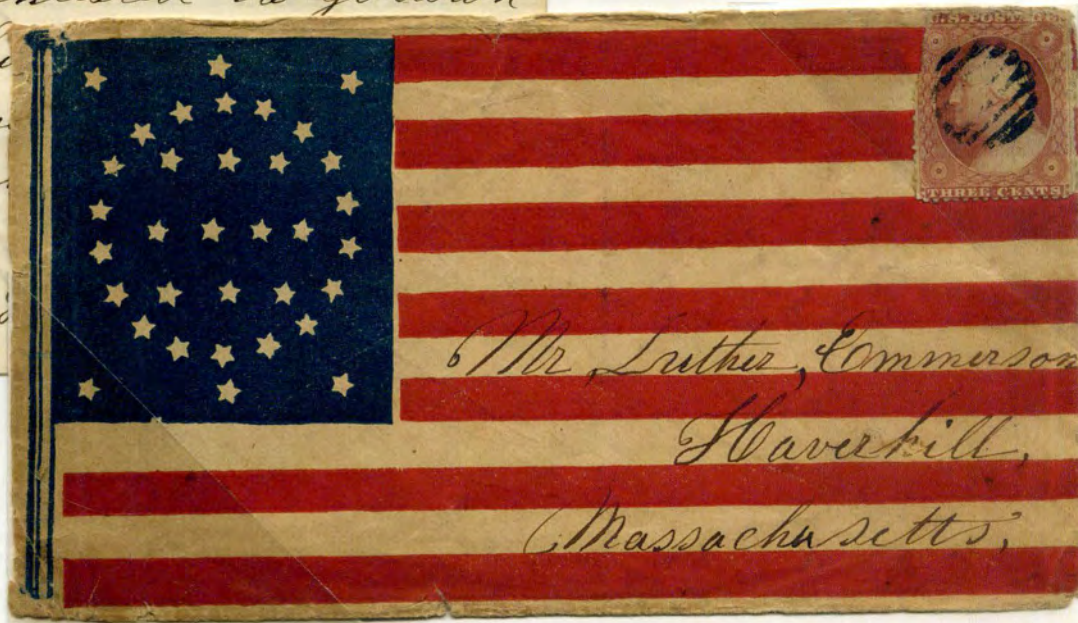 to go down
U.S. POSTAGE
THREE CENTS
Mr Luther, Emmerson
Haverhill,
Massachusetts,